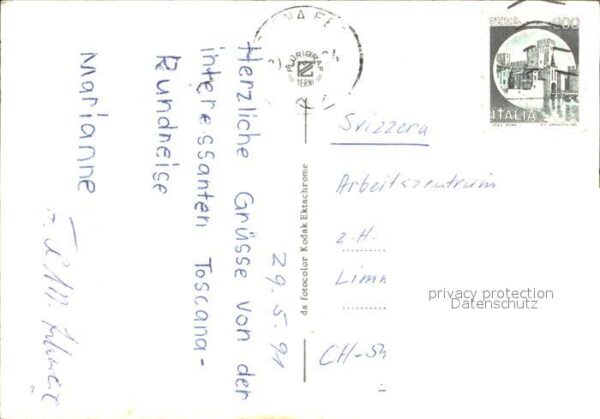 29.5.91
Herzliche Grüsse von der
interessanten Toscana-
Rundreise
Marianne
PLURIGRAF
TERNI
da fotocolor Kodak Ektachrome
600
ITALIA
Svizzera
Arbeitszentrum
z.H.
Limm
CH-54
privacy protection
Datenschutz